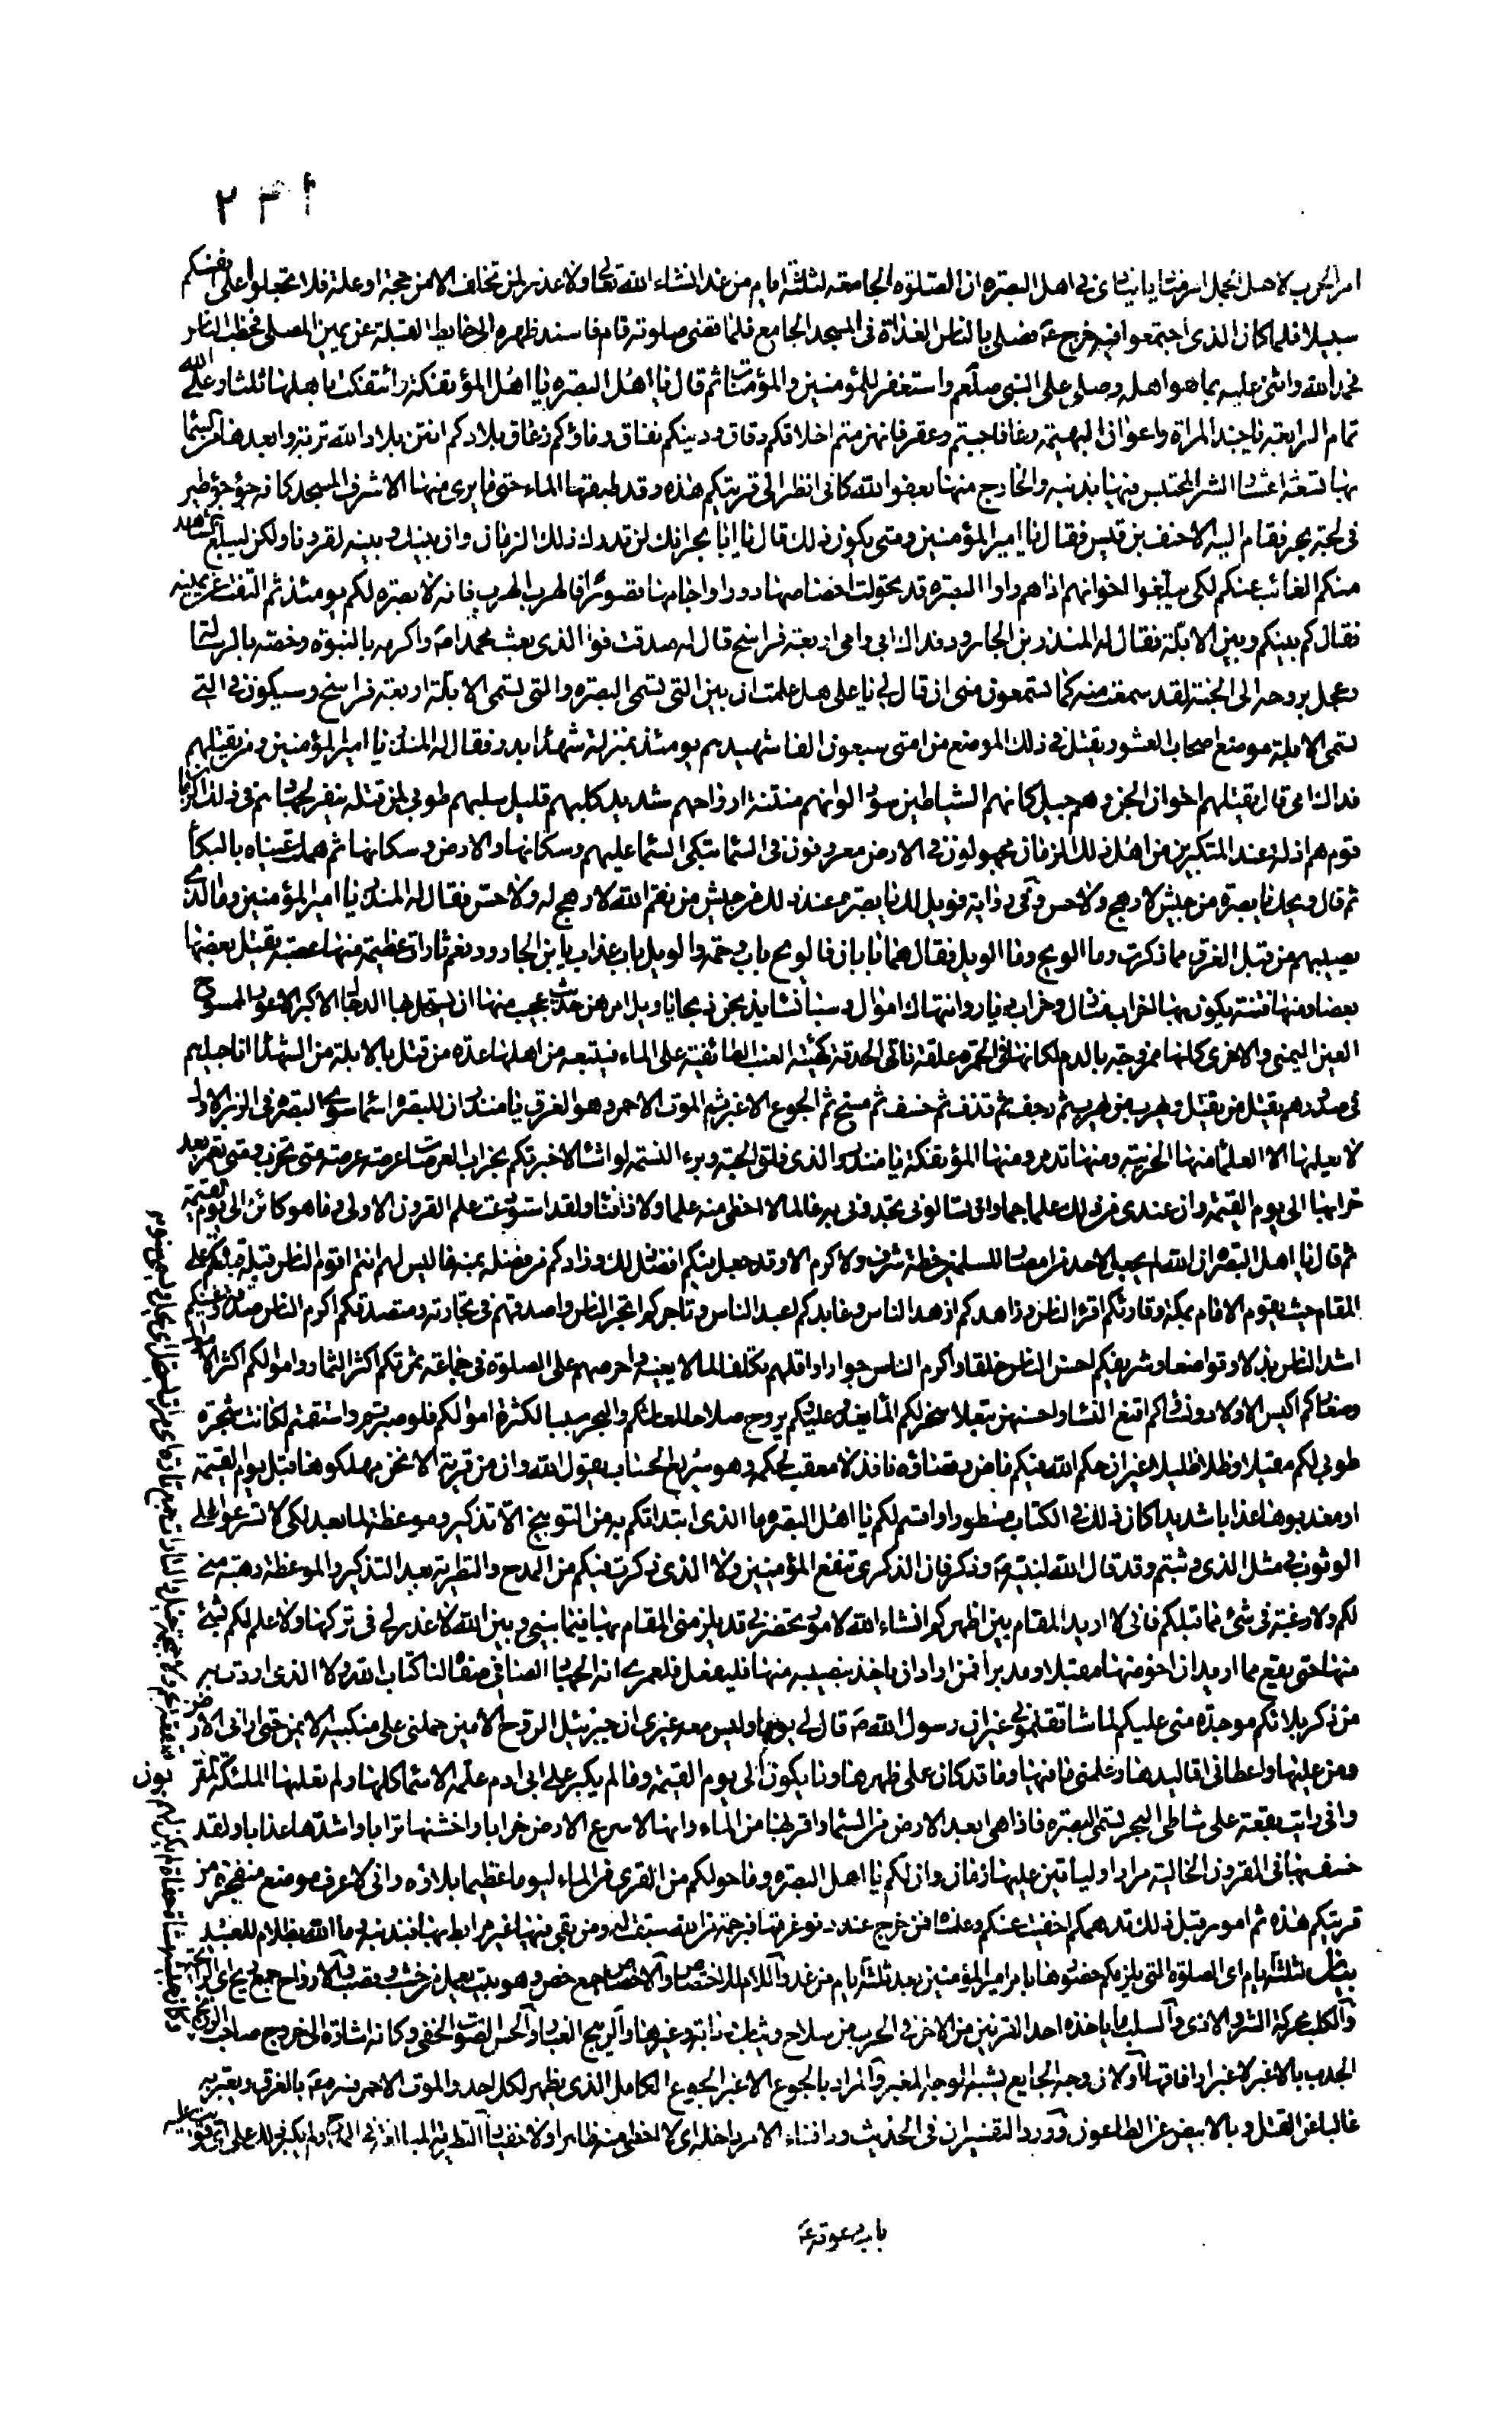 ٢٣١
امر الحرب لاهل الجمل امر مناديا ينادى فى اهل البصرة ان الصلوة الجامعة لثلثة ايام من غد انشاء الله تعالى ولا عذر لمن تخلف الا من حجة او علة فلا تجعلوا على انفسكم
سبيلا فلما كان الذى اجتمعوا فيه خرج ع فصلى بالناس الغداة فى المسجد الجامع فلما قضى صلوته قام فاسند ظهره الى حايط القبلة عن يمين المصلى فخطب الناس
فحمد الله واثنى عليه بما هو اهله وصلى على النبى صلعم واستغفر للمؤمنين والمؤمنات ثم قال يا اهل البصرة يا اهل المؤتفكة ائتفكت باهلها ثلثا وعلى الله
تمام الرابعة يا جند المراة واعوان البهيمة رغا فاجبتم وعقر فانهزمتم اخلاقكم دقاق ودينكم نفاق وماؤكم زعاق بلادكم انتن بلاد الله تربة وابعدها من السماء
بها تسعة اعشار الشر المحتبس فيها بذنبه والخارج منها بعفو الله كانى انظر الى قريتكم هذه وقد طبقها الماء حتى ما يرى منها الا شرف المسجد كانه جؤجؤ طير
فى لجة بحر فقام اليه الاحنف بن قيس فقال يا امير المؤمنين ومتى يكون ذلك قال يا ابا بحر انك لن تدرك ذلك الزمان وان بينك وبينه لقرونا ولكن ليبلغ الشاهد
منكم الغائب عنكم لكى يبلغوا اخوانهم اذا هم راوا البصرة قد تحولت اخصاصها دورا واجامها قصورا فالهرب الهرب فانه لا بصرة لكم يومئذ ثم التفت عن يمينه
فقال كم بينكم وبين الابلة فقال له المنذر بن الجارود فداك ابى وامى اربعة فراسخ قال له صدقت فوالذى بعث محمدا ص واكرمه بالنبوة وخصه بالرسالة
وعجل بروحه الى الجنة لقد سمعت منه كما تسمعون منى ان قال لى يا على هل علمت ان بين التى تسمى البصرة والتى تسمى الابلة اربعة فراسخ وسيكون فى التى
تسمى الابلة موضع اصحاب العشور يقتل فى ذلك الموضع من امتى سبعون الفا شهيدهم يومئذ بمنزلة شهداء بدر فقال له المنذر يا امير المؤمنين ومن يقتلهم
فداك امى قال يقتلهم اخوان الجن وهم جيل كانهم الشياطين سود الوانهم منتنة ارواحهم شديد كلبهم قليل سلبهم طوبى لمن قتله ينفر لجهادهم فى ذلك الزمان
قوم هم اذلة عند المتكبرين من اهل ذلك الزمان مجهولون فى الارض معروفون فى السماء تبكى السماء عليهم وسكانها والارض وسكانها ثم هملت عيناه بالبكاء
ثم قال ويحك يا بصرة من جيش لا رهج ولا حس فقال له المنذر يا امير المؤمنين وما الذى
يصيبهم من قبل الغرق مما ذكرت وما الويح وما الويل فقال هما بابان فالويح باب رحمة والويل باب عذاب يا ابن الجارود نعم ثارات عظيمة منها عصبة يقتل بعضها
بعضا ومنها فتنة يكون بها اخراب منازل وخراب ديار وانتهاك اموال وسباء نساء يذبحن ذبحا يا ويل امرهن حديث عجيب منها ان يستحل بها الدجال الاكبر الاعور الممسوح
العين اليمنى والاخرى كانها ممزوجة بالدم لكانها فى الحمرة علقة ناتى الحدقة كهيئة العنب الطافية على الماء فيتبعه من اهلها عدة من قتل بالابلة من الشهداء اناجيلهم
فى صدورهم يقتل من يقتل ويهرب من يهرب ثم رجف ثم قذف ثم خسف ثم مسخ ثم الجوع الاغبر ثم الموت الاحمر وهو الغرق يا منذر ان للبصرة اسماء سوى البصرة فى الزبر الاول
لا يعلمها الا العلماء منها الخريبة ومنها تدمر ومنها المؤتفكة يا منذر والذى فلق الحبة وبرء النسمة لو اشاء لاخبرتكم بخراب العرصات عرصة عرصة متى تخرب ومتى تعمر بعد
خرابها الى يوم القيمة وان عندى من ذلك علما جما وان تسالونى تجدونى به عالما لا اخطى منه علما ولا وانيا ولقد استودعت علم القرون الاولى وما هو كائن الى يوم القيمة
ثم قال يا اهل البصرة ان الله لم يجعل لاحد من امصار المسلمين خطة شرف ولا كرم الا وقد جعل فيكم افضل ذلك وزادكم من فضله بمنه ما ليس لهم انتم اقوم الناس قبلة قبلتكم على
المقام حيث يقوم الامام بمكة وقارئكم اقرء الناس وزاهدكم ازهد الناس وعابدكم اعبد الناس وتاجركم اتجر الناس واصدقهم فى تجارته ومتصدقكم اكرم الناس صدقة وغنيكم
اشد الناس بذلا وتواضعا وشريفكم احسن الناس خلقا وانتم اكرم الناس جوارا واقلهم تكلفا لما لا يعنيه واحرصهم على الصلوة فى جماعة ثمرتكم اكثر الثمار واموالكم اكثر الاموال
وصغاركم اكيس الاولاد ونساؤكم اقنع النساء واحسنهن تبعلا سخر لكم الماء يغدو عليكم ويروح صلاحا لمعاشكم والبحر سببا لكثرة اموالكم فلو صبرتم واستقمتم لكانت شجرة
طوبى لكم مقيلا وظلا ظليلا غير ان حكم الله فيكم ماض وقضاؤه نافذ لا معقب لحكمه وهو سريع الحساب يقول الله وان من قرية الا نحن مهلكوها قبل يوم القيمة
او معذبوها عذابا شديدا كان ذلك فى الكتاب مسطورا واقسم لكم يا اهل البصرة ما الذى ابتداتكم به من التوبيخ الا تذكير وموعظة لما بعد لكى لا تسرعوا الى
الوثوب فى مثل الذى وثبتم وقد قال الله لنبيه ص وذكر فان الذكرى تنفع المؤمنين ولا الذى ذكرت فيكم من المدح والتطرية بعد التذكير والموعظة رهبة منى
لكم ولا رغبة فى شئ مما قبلكم فانى لا اريد المقام بين اظهركم انشاء الله لامور تحضرنى قد يلزمنى المقام بها فيما بينى وبين الله لا عذر لى فى تركها ولا علم لكم بشئ
منها حتى يقع مما اريد ان اخوضها مقبلا ومدبرا فمن اراد ان ياخذ بنصيبه منها فليفعل فلعمرى انه الجهاد الصافى صفاه لنا كتاب الله ولا الذى اردت به
من ذكر بلادكم موجدة منى عليكم لما شاقتمونى غير ان رسول الله ص قال لى يوما وليس معه غيرى ان جبرئيل الروح الامين حملنى على منكبه الايمن حتى ارانى الارض
ومن عليها واعطانى اقاليدها وعلمنى ما فيها وما قد كان على ظهرها وما يكون الى يوم القيمة وما لم يكبر على ابى ادم علمه الاسماء كلها ولم تعلمها الملئكة المقربون
وانى رايت بقعة على شاطى البحر تسمى البصرة فاذا هى ابعد الارض من السماء واقربها من الماء وانها لاسرع الارض خرابا واخشنها ترابا واشدها عذابا ولقد
خسف بها فى القرون الخالية مرارا وليأتين عليها زمان وان لكم يا اهل البصرة وما حولكم من القرى من الماء ليوما عظيما بلاؤه وانى لاعرف موضع منفجره من
قريتكم هذه ثم امور قبل ذلك تدهمكم اخفيت عنكم وعلمنا فمن خرج عند دنو غرقها فبرحمة من الله سبقت له ومن بقى فيها غير مرابط بها فبذنبه وما الله بظلام للعبيد
والكلب محركة الشر والاذى والسلب ما ياخذه احد القرنين من الاخر فى الحرب من سلاح وثياب ودابة وغيرها والرهج الغبار والحس الصوت الخفى وكانه اشارة الى خروج صاحب الزنج
الجدب بالاغبر لاغبرار افاقها او لان وجه الجايع يشبه الوجه المغبر والمراد بالجوع الاغبر الجوع الكامل الذى يظهر لكل احد والموت الاحمر فسره ع بالغرق ويعبر به
غالبا عن القتل وبالابيض عن الطاعون وورد التفسيران فى الحديث